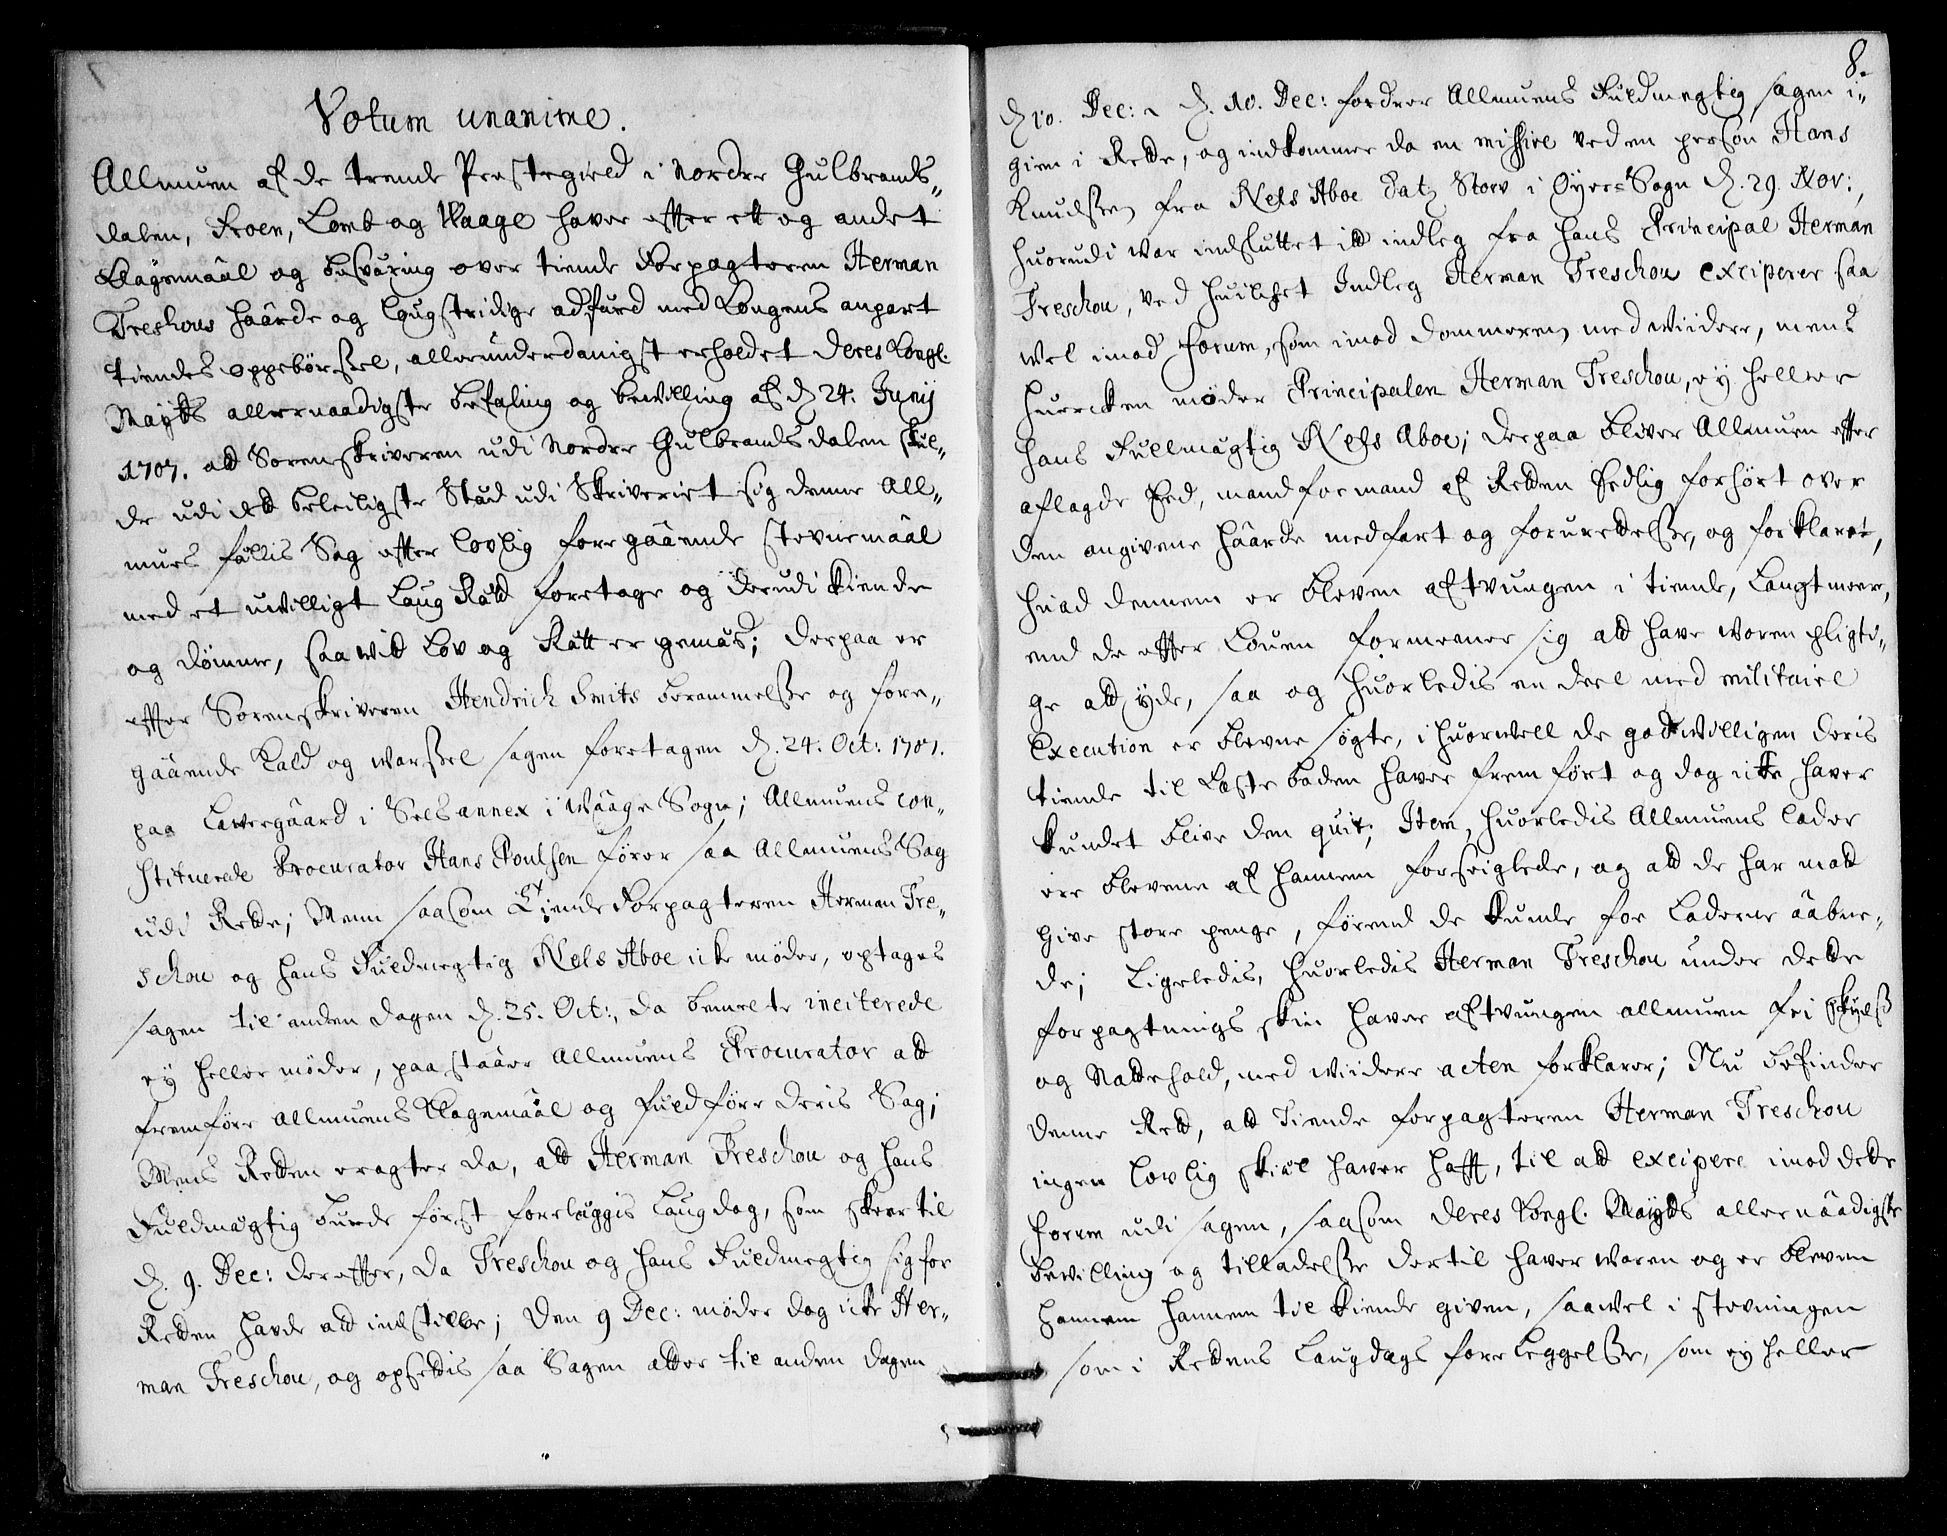 Votum unanime.
Allmuen af de trende Præstegield i Nordre Gulbrands„
dalen, Froen, Lomb og Waage haver effter ett og andet
Klagemaal og besværing over tiende Forpagteren Herman
Treschous haarde og laugstridige adfærd med Kongens anpart
tiendes oppebørssel, allerunderdanigst erholdet Deres Kongl.
Maÿtts allernaadigste befaling og bevilling af d. 24. Junij
1707. att Sorenskriveren udi Nordre Gulbrandsdalen skul„
de udi dett beleiligste Stæd udi Skriveriet sig denne All„
mues fællis Sag effter lovlig foregaaende stevnemaal
med et uvilligt Laug Rætt foretage og derudi kiende
og dømme, saa vit Lov og Rætt er gemæs; Derpaa er
effter Sorenskriveren Hendrich Smits berammelsse og fore„
gaaende Kald og Warssel sagen foretagen d. 24. Oct: 1707.
paa Lavergaard i Sels annex i Waage Sogn; Allmuens con„
stituerede Procurator Hans Poulsen fører saa Allmuens Sag
udi Rette; Menn saasom Tiende Forpagteren Herman Tre„
schou og hans Fuldmegtig Nels Aboe icke møder, optages
sagen til anden dagen d. 25. Oct:, da bemelte inciterede
eÿ heller møder, paastaaer Allmuens Procurator att
fremføre Allmuens Klagemaal og fuldføre deris Sag;
Mens Retten eragter da, att Herman Treschou og hans
Fuldmægtig burde først forelæggis Laugdag, som skeer til
d. 9. Dec: dereffter, da Treschou og hans Fuldmegtig sig for
Retten havde att indstille; Den 9 Dec: møder dog icke Her„
man Treschou, og opsettis saa Sagen atter til anden dagen
8.
d. 10. Dec: d. 10. Dec: fordrer Allmuens Fuldmegtig sagen i„
gien i Rette, og indkommer da en missive ved en person Hans
Knudssen fra Nels Aboe Datz Storv i Øÿers Sogn d. 29. Nov:,
huorudi var indsluttet itt indleg fra hans Principal Herman
Treschou, ved huilchet Indleg Herman Treschou exciperer saa
vel imod forum, som imod dommeren med viidere, mens
huercken møder Principalen Herman Treschou, eÿ heller
hans Fullmægtig Nels Aboe; Derpaa bliver Allmuen effter
aflagde Eed, mand for mand af Retten Edlig forhørt over
den angivene haarde medfart og forurettelsse, og forklarer,
huad dennem er bleven aftvungen i tiende, Langt meer,
end de effter Loven formeener sig att have voren pligti„
ge att ÿde, saa og huorledis en deel med militaire
Execution er blevne søgte, i huorvell de godtvilligen deris
tiende til Kaste boden haver fremført og dog icke haver
kundet blive den quit; Item, huorledis Allmuens lader
ere blevene af hannem forseiglede, og att de har matt
give store penge, førend de kunde foe Laderne aabne„
de; Ligeledis, huorledis Herman Treschou under dette
forpagtnings skin haver aftvungen allmuen fri skyds
og Nattehold, med viidere acten forklarer; Nu befinder
denne Rett, att Tiende forpagteren Herman Treschou
ingen lovlig skiæl haver hafft, til att excipere imod dette
forum udi sagen, saasom Deres Kongl. Maÿtts allernaadigste
bevilling og tilladelsse dertil haver waren og er bleven
hannem hannem til kiende given, saavel i stevningen
som i Rettens Laugdags foreleggelsse, som eÿ heller